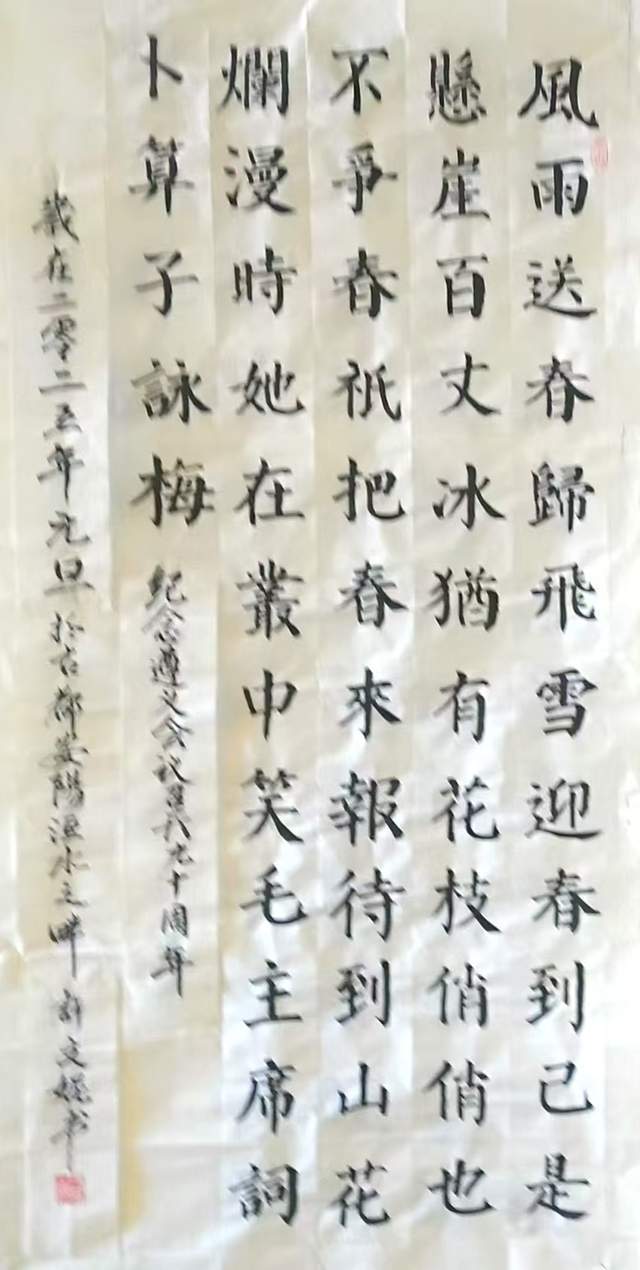 風雨送春歸飛雪迎春到己是
懸崖百丈冰猶有花枝俏俏也
不爭春祇把春來報待到山花
爛漫時她在叢中笑毛主席詞
卜算子詠梅 纪念遵义会议召开九十周年
歲在二零二五年元旦於古都安陽洹水之畔 文书